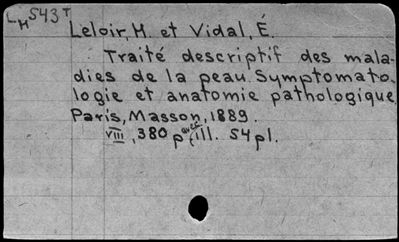 LH543T
Leloir, H. et Vidal, É.
Traité descriptif des mala-
dies de la peau. Symptomato-
logie et anatomie pathologique.
Paris, Masson, 1889.
VIII, 380 p. avec ill. 54 pl.